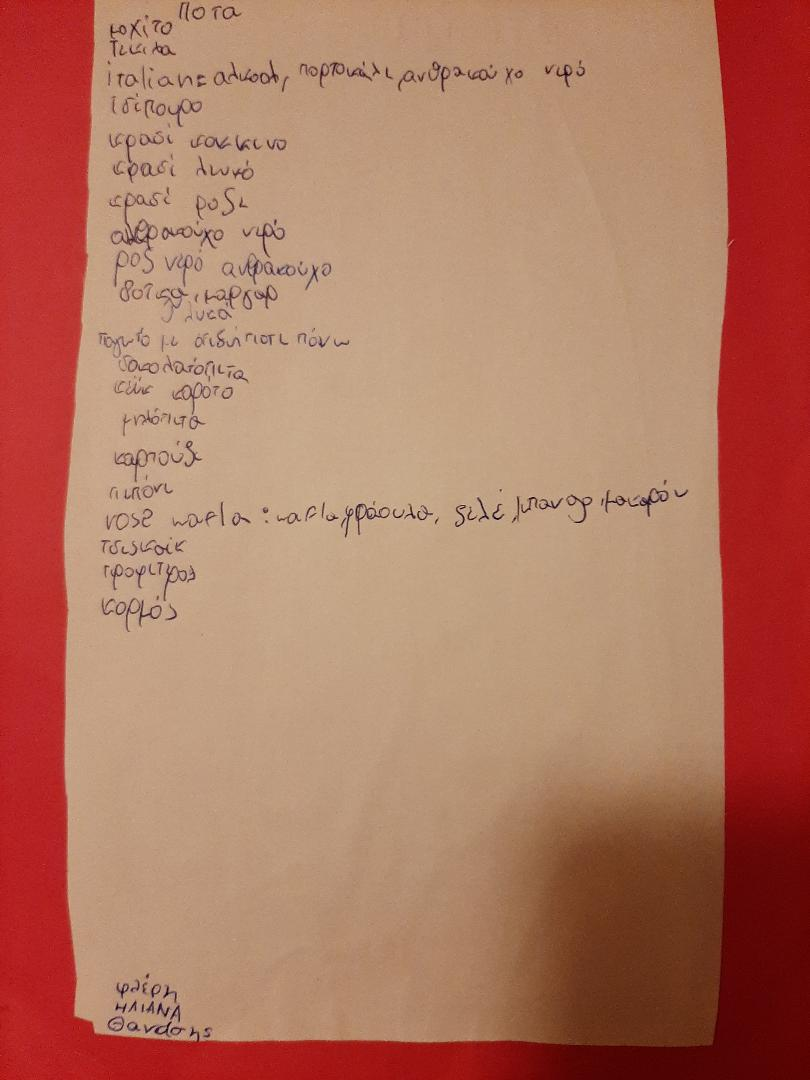 Ποτα
μοχίτο
Τεκιλα
italian = αλκοολ, πορτοκάλι, ανθρακούχο νερό
τσίπουρο
κρασί κοκκινο
κρασί λευκό
κρασί ροζε
ανθρακούχο νερό
ροζ νερό ανθρακούχο
βοτκα, μαργαρ
γλυκά
παγωτό με οτιδήποτε πάνω
σοκολατόπιτα
κέικ καρότο
μηλόπιτα
καρπούζι
πεπόνι
rose wafla : wafla, φράουλα, ζελέ, μακαρόν
τσιζκεικ
προφιτρολ
κορμός
φλέρη
ΗΛΙΑΝΑ
Θανάσης